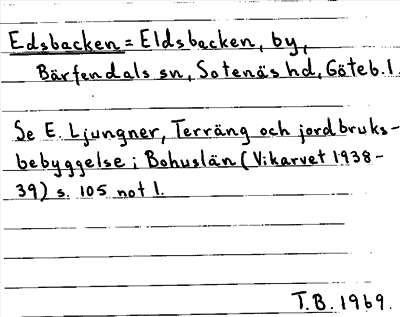 Edsbacken = Eldsbacken, by,
Bärfendals sn, Sotenäs hd, Göteb. l.
Se E. Ljungner, Terräng och jordbruks-
bebyggelse i Bohuslän (Vikarvet 1938-
39) s. 105 not 1.
T.B. 1969.